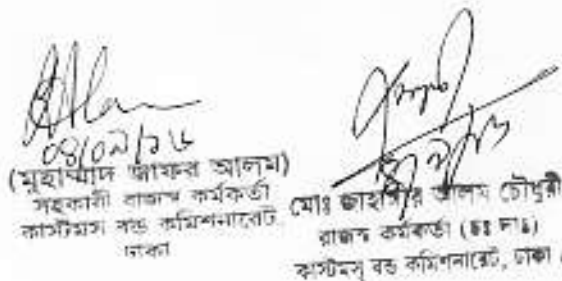 (মুহাম্মাদ জাফর আলম)
সহকারী রাজস্ব কর্মকর্তা
কাস্টমস বন্ড কমিশনারেট,
ঢাকা
মোঃ জাহাঙ্গীর আলম চৌধুরী
রাজস্ব কর্মকর্তা (চঃ দাঃ)
কাস্টমস্ বন্ড কমিশনারেট, ঢাকা।